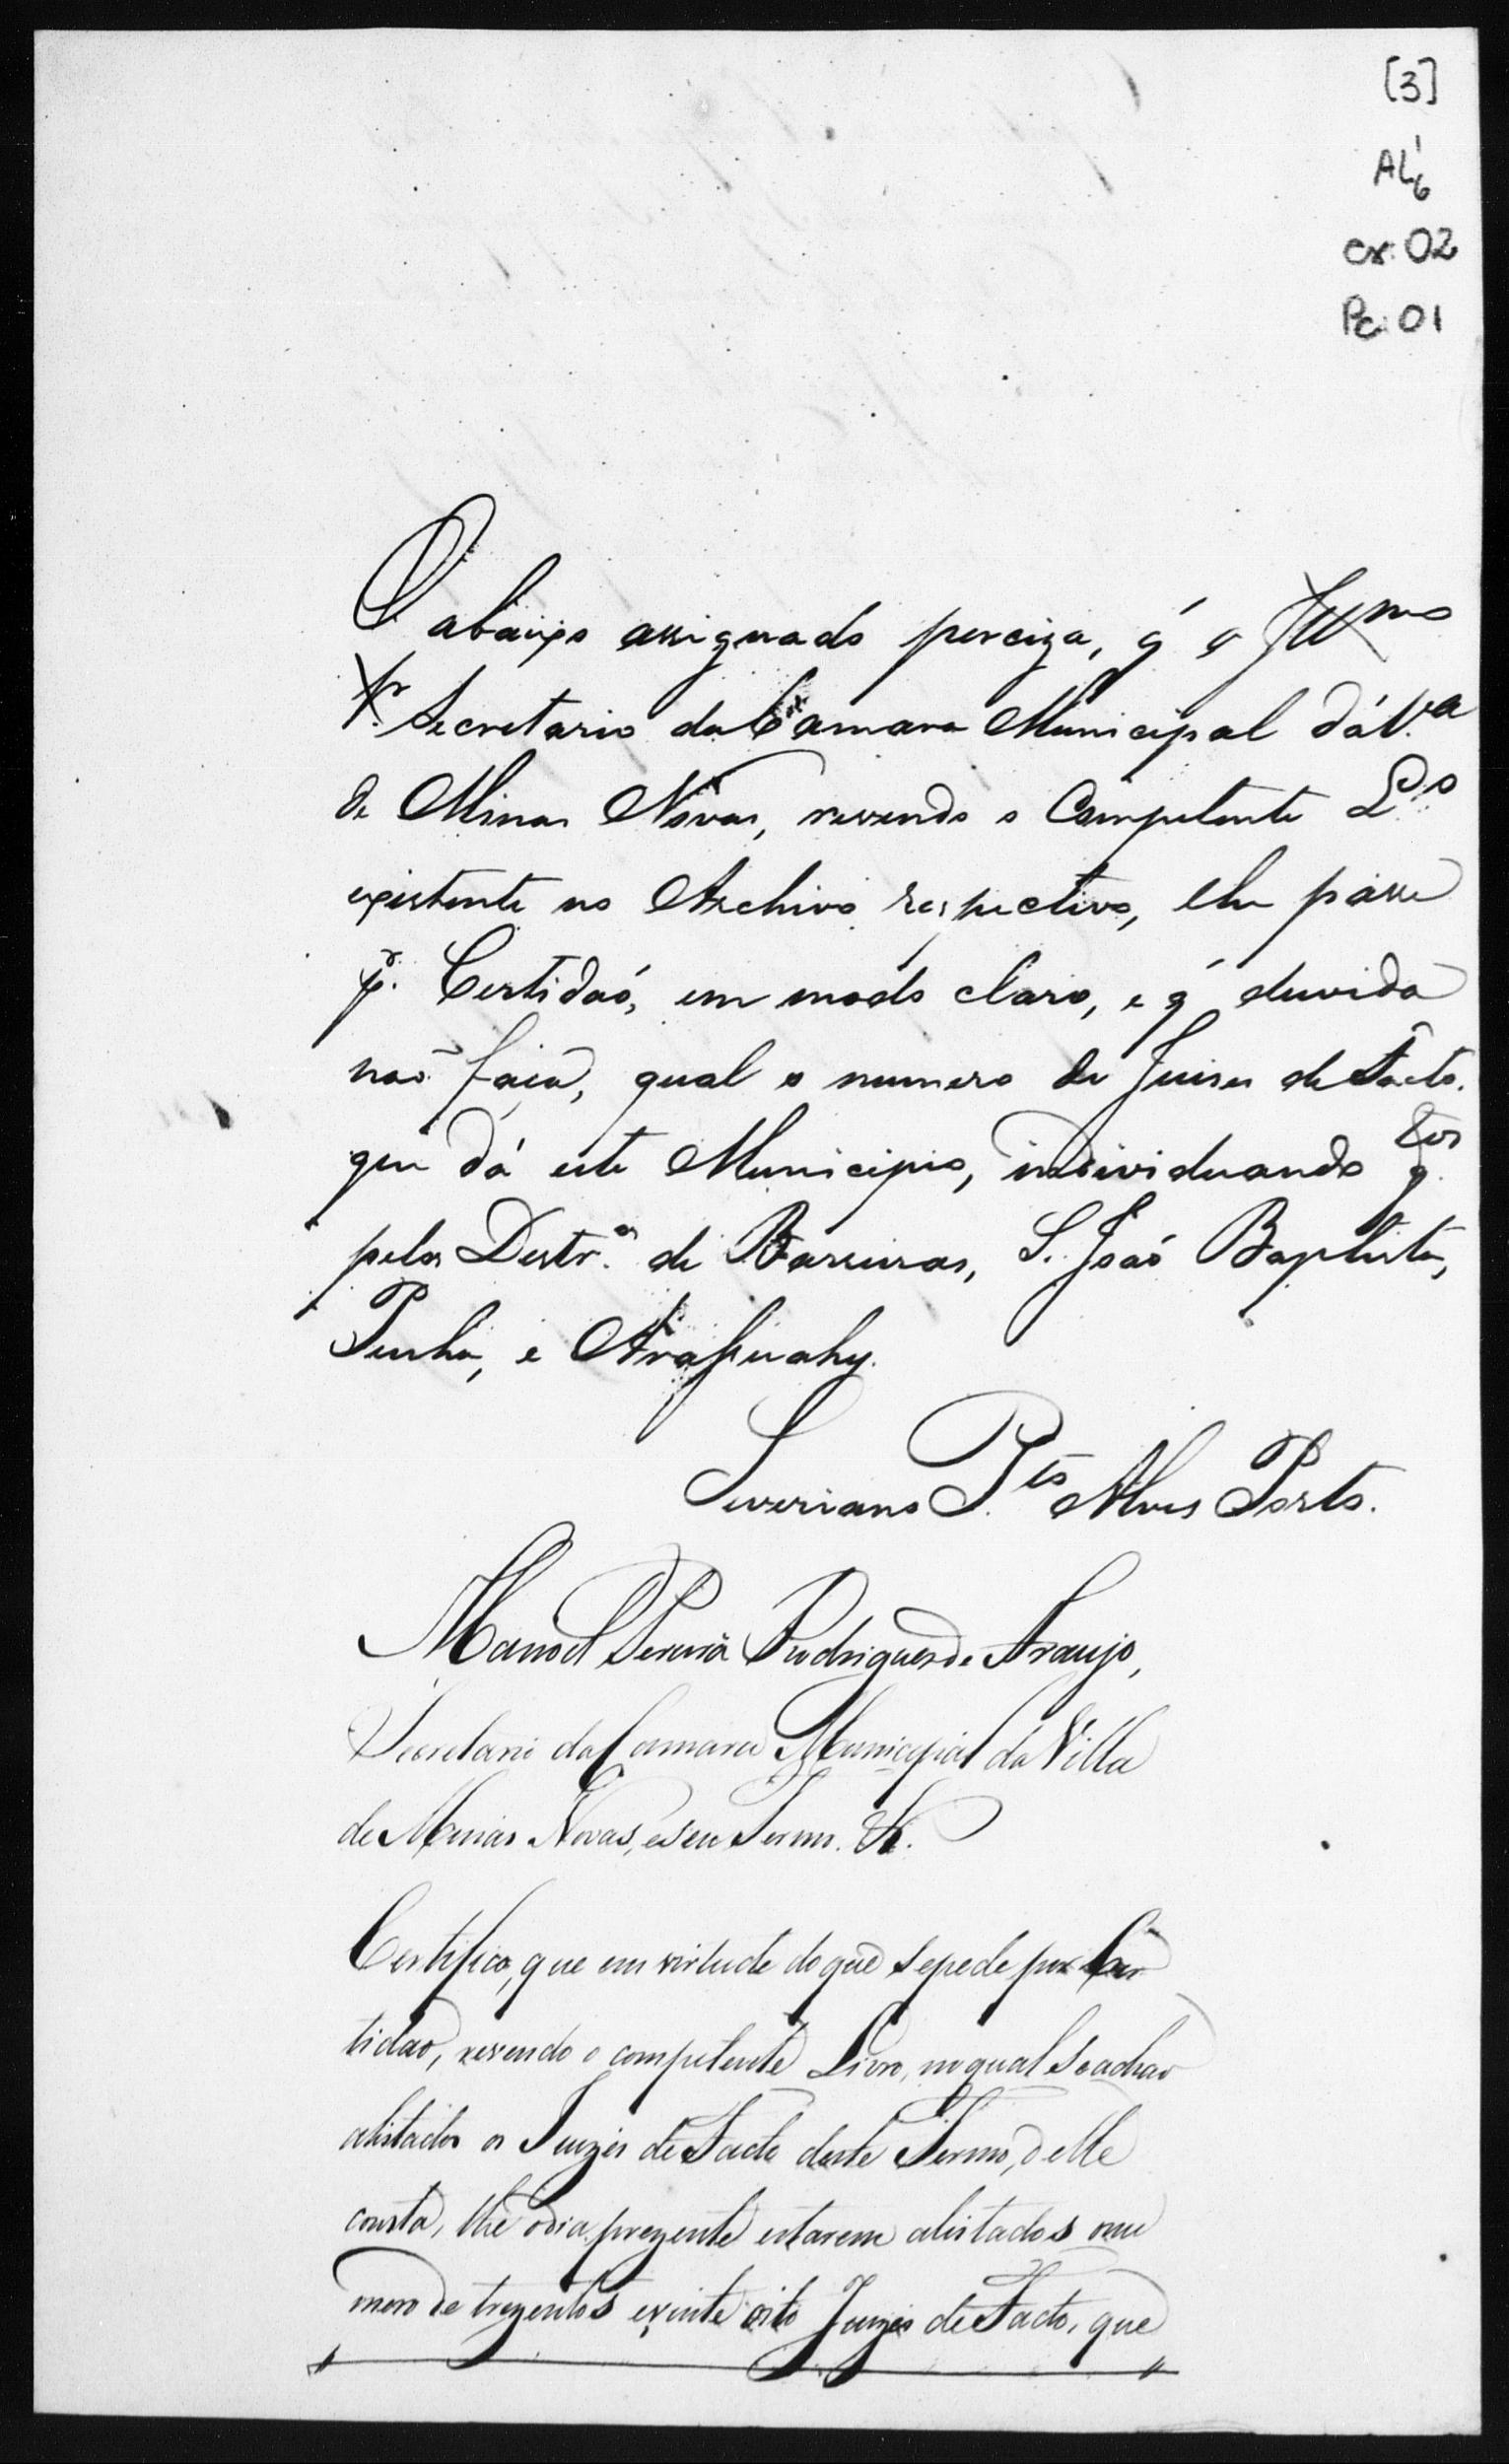 [3]
AL'6
cx: 02
Pc: 01
O abaixo assignado perciza, q' o Illmo
Sr. Secretario da Camara Municipal dá Va
de Minas Novas, revendo o Competente Lo
existente no Archivo respectivo, lhe passe
pr. Certidaó, em modo claro, e q' duvida
naõ faça, qual o numero de Juises de Facto.
que dá este Municipio, individuando qtos
pelos Destros de Barreiras, S. Joaó Baptista,
Penha, e Arassuahy.
Severiano P.to Alves Porto.
Manoel Pereira Rodrigues de Araujo,
Secretario da Camara Municipal da Villa
de Minas Novas, e seu Termo. &.
Certifico, que em virtude do que se pede por Cer
tidaõ, revendo o competente Livro, no qual se achaõ
alistados os Juizes de Facto deste Termo, delle
consta, thé o dia prezente estarem alistados o nu
mero de trezentos e vinte oito Juizes de Facto, que